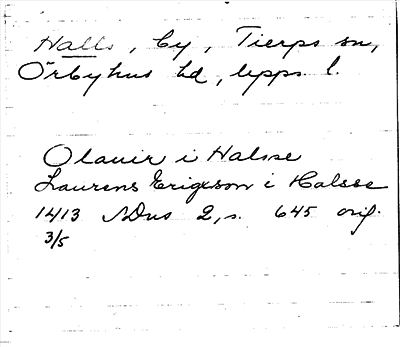 Halls, by, Tierps sn,
Örbyhus hd, Upps. l.
Olauir i Halsse
Laurens Ericson i Halsse
1413 SDns 2, s. 645 orig.
3/5